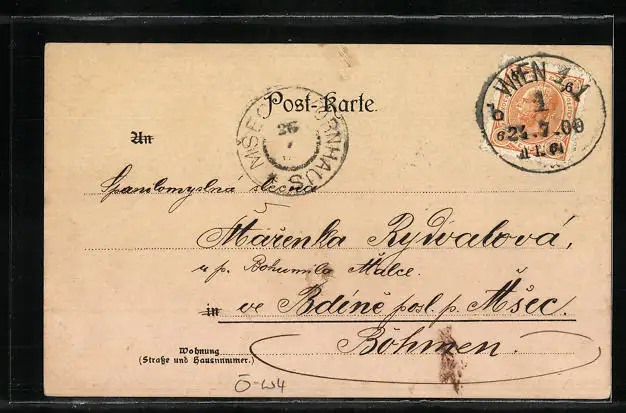 Post-Karte.
WIEN 1/1
6
b 1
624.7.00
MŠEC * KORNHAUS
26
7
An
Spanilomyslna slečna
Mařenka Rydvalová,
u p. Bohumila Málce.
in ve Bdíně posl. p. Mšec.
Böhmen.
Wohnung
(Straße und Hausnummer.)
Ö-W4